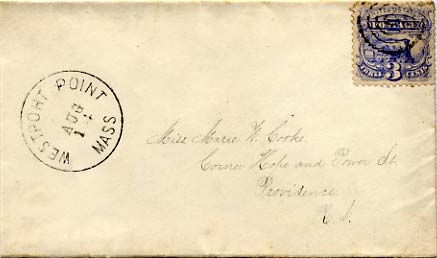 WESTPORT POINT
AUG
1
MASS
POSTAGE
THREE 3 CENTS
Miss Marie W. Cooke
Corner Hope and Power St.
Providence
R. I.